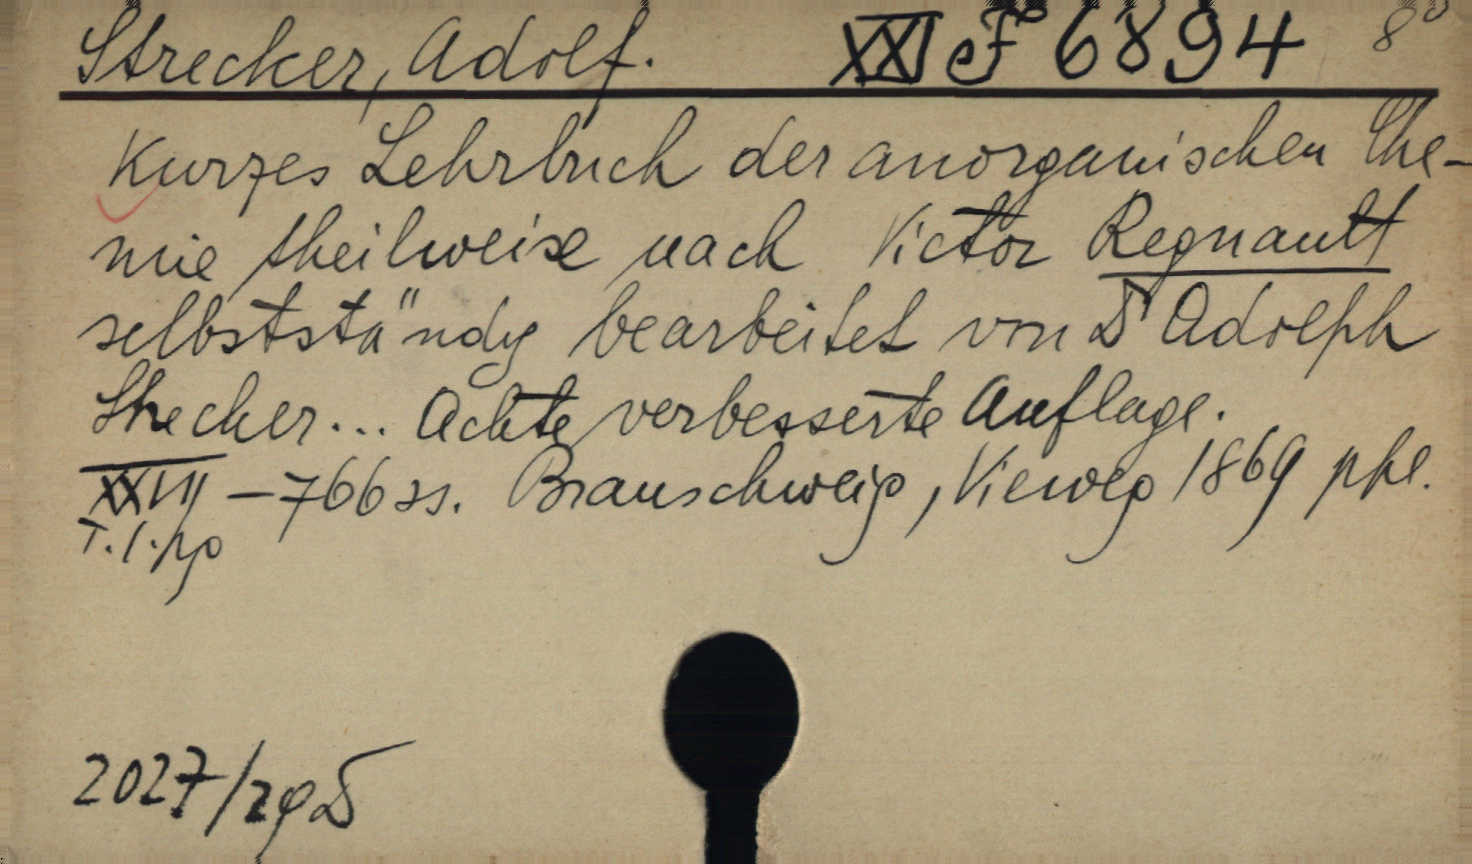 Strecker, Adolf. XXI eF 6894 8°
Kurzes Lehrbuch der anorganischen Che-
mie theilweise nach Victor Regnault
selbstständig bearbeitet von Dr Adolph
Strecker... Achte verbesserte Auflage.
XXVIII – 766 ss. Braunschweig, Vieweg 1869 ppl.
T. I.
2027/